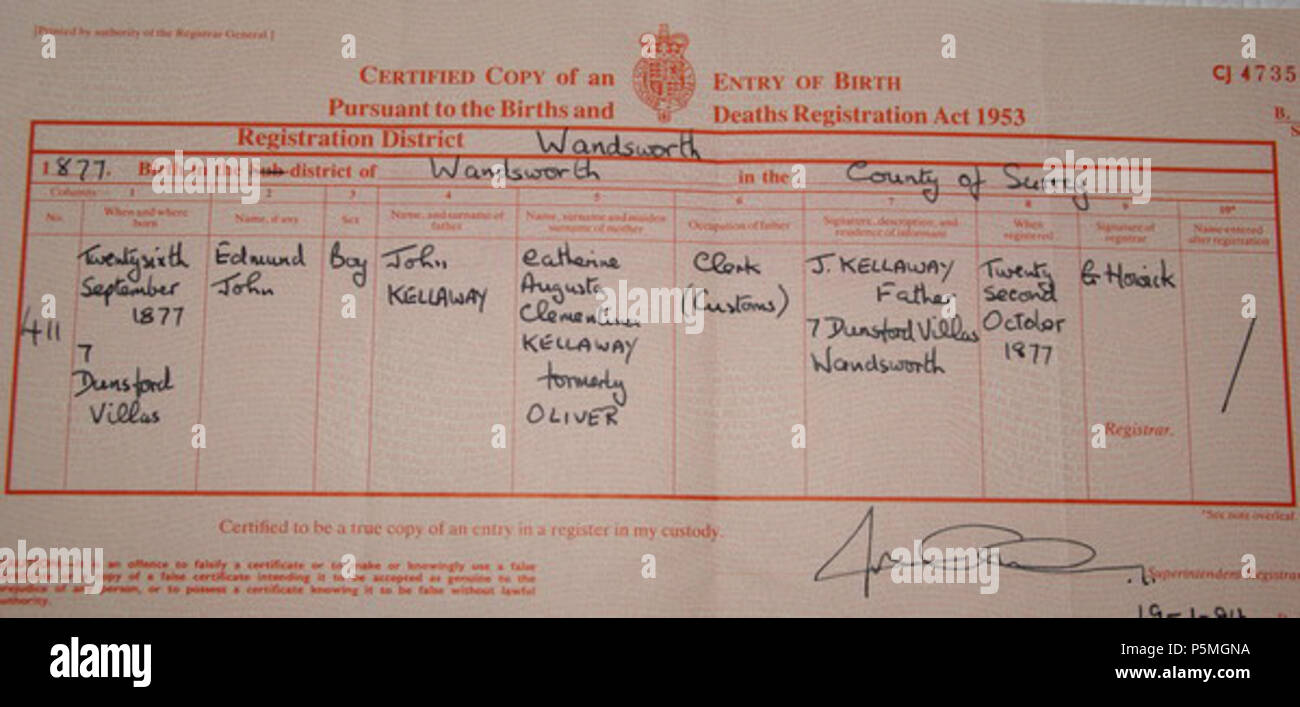 [Printed by authority of the Registrar General]
CERTIFIED COPY of an ENTRY OF BIRTH
Pursuant to the Births and Deaths Registration Act 1953
CJ 4735
B.
S
Registration District Wandsworth
1877. Birth in the Sub-district of Wandsworth in the County of Surrey
Columns 1 2 3 4 5 6 7 8 9 10*
No.
When and where born
Name, if any
Sex
Name, and surname of father
Name, surname and maiden surname of mother
Occupation of father
Signature, description, and residence of informant
When registered
Signature of registrar
Name entered after registration
411
Twentysixth
September
1877
7
Dunsford
Villas
Edmund
John
Boy
John
KELLAWAY
Catherine
Augusta
Clementina
KELLAWAY
formerly
OLIVER
Clerk
(Customs)
J. KELLAWAY
Father
7 Dunsford Villas
Wandsworth
Twenty
second
October
1877
G Howick
Registrar.
*See note overleaf.
Certified to be a true copy of an entry in a register in my custody.
Superintendent Registrar
an offence to falsify a certificate or to make or knowingly use a false
copy of a false certificate intending it to be accepted as genuine to the
prejudice of any person, or to possess a certificate knowing it to be false without lawful
authority.
a alamy
alamy
Image ID: P5MGNA
www.alamy.com